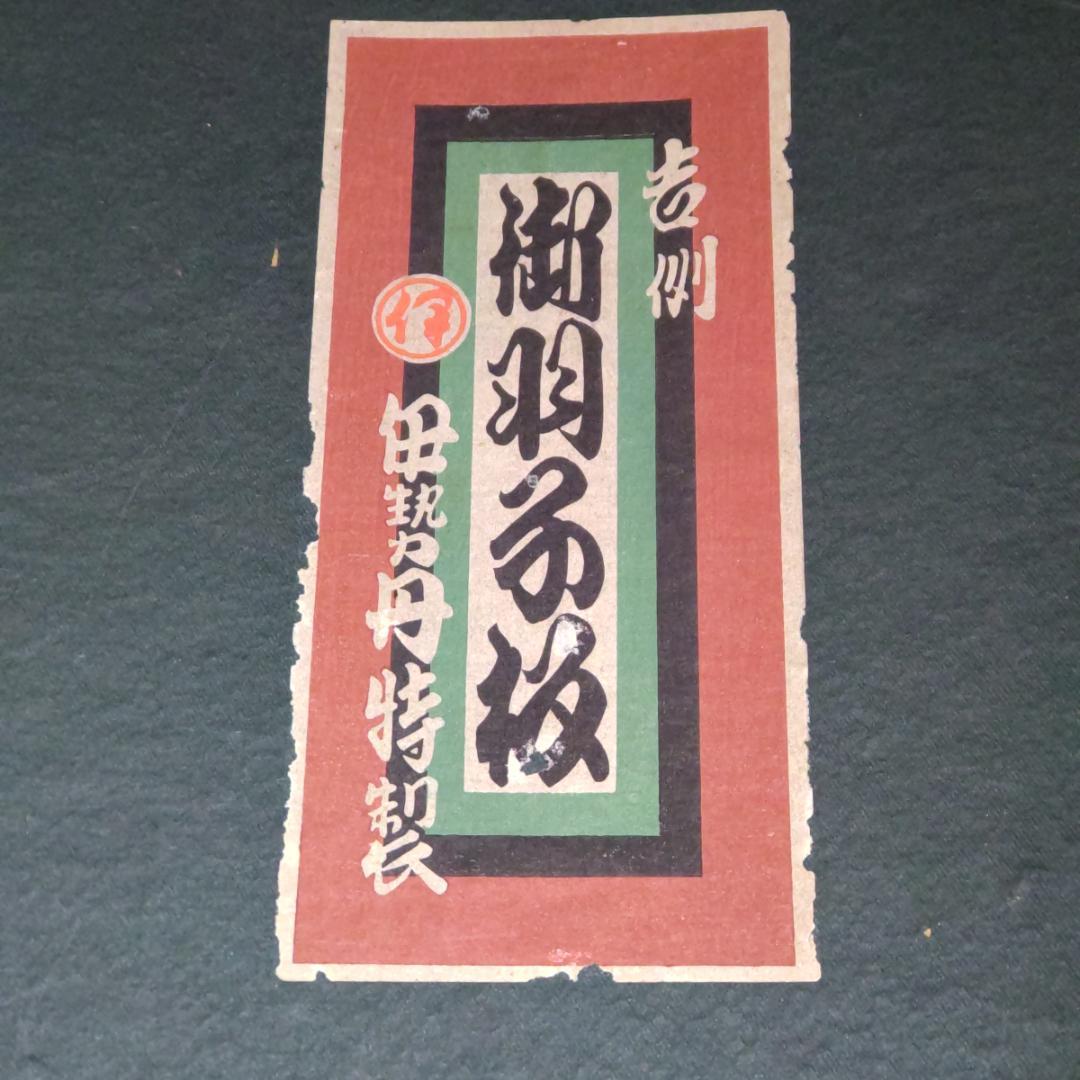 吉例
御羽子板
伊
伊勢丹特製